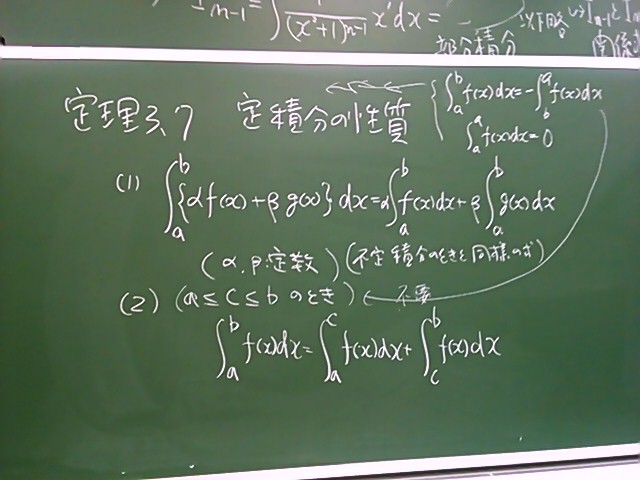 I_{n-1} = ∫ 1/(x²+1)^{n-1} x' dx =
部分積分
以下略
定理3.7 定積分の性質
∫_a^b f(x)dx = -∫_b^a f(x)dx
∫_a^a f(x)dx = 0
(1) ∫_a^b {αf(x)+βg(x)} dx = α∫_a^b f(x)dx + β∫_a^b g(x)dx
(α, β: 定数) (不定積分のときと同様の式)
(2) (a ≤ c ≤ b のとき) ← 不要
∫_a^b f(x)dx = ∫_a^c f(x)dx + ∫_c^b f(x)dx